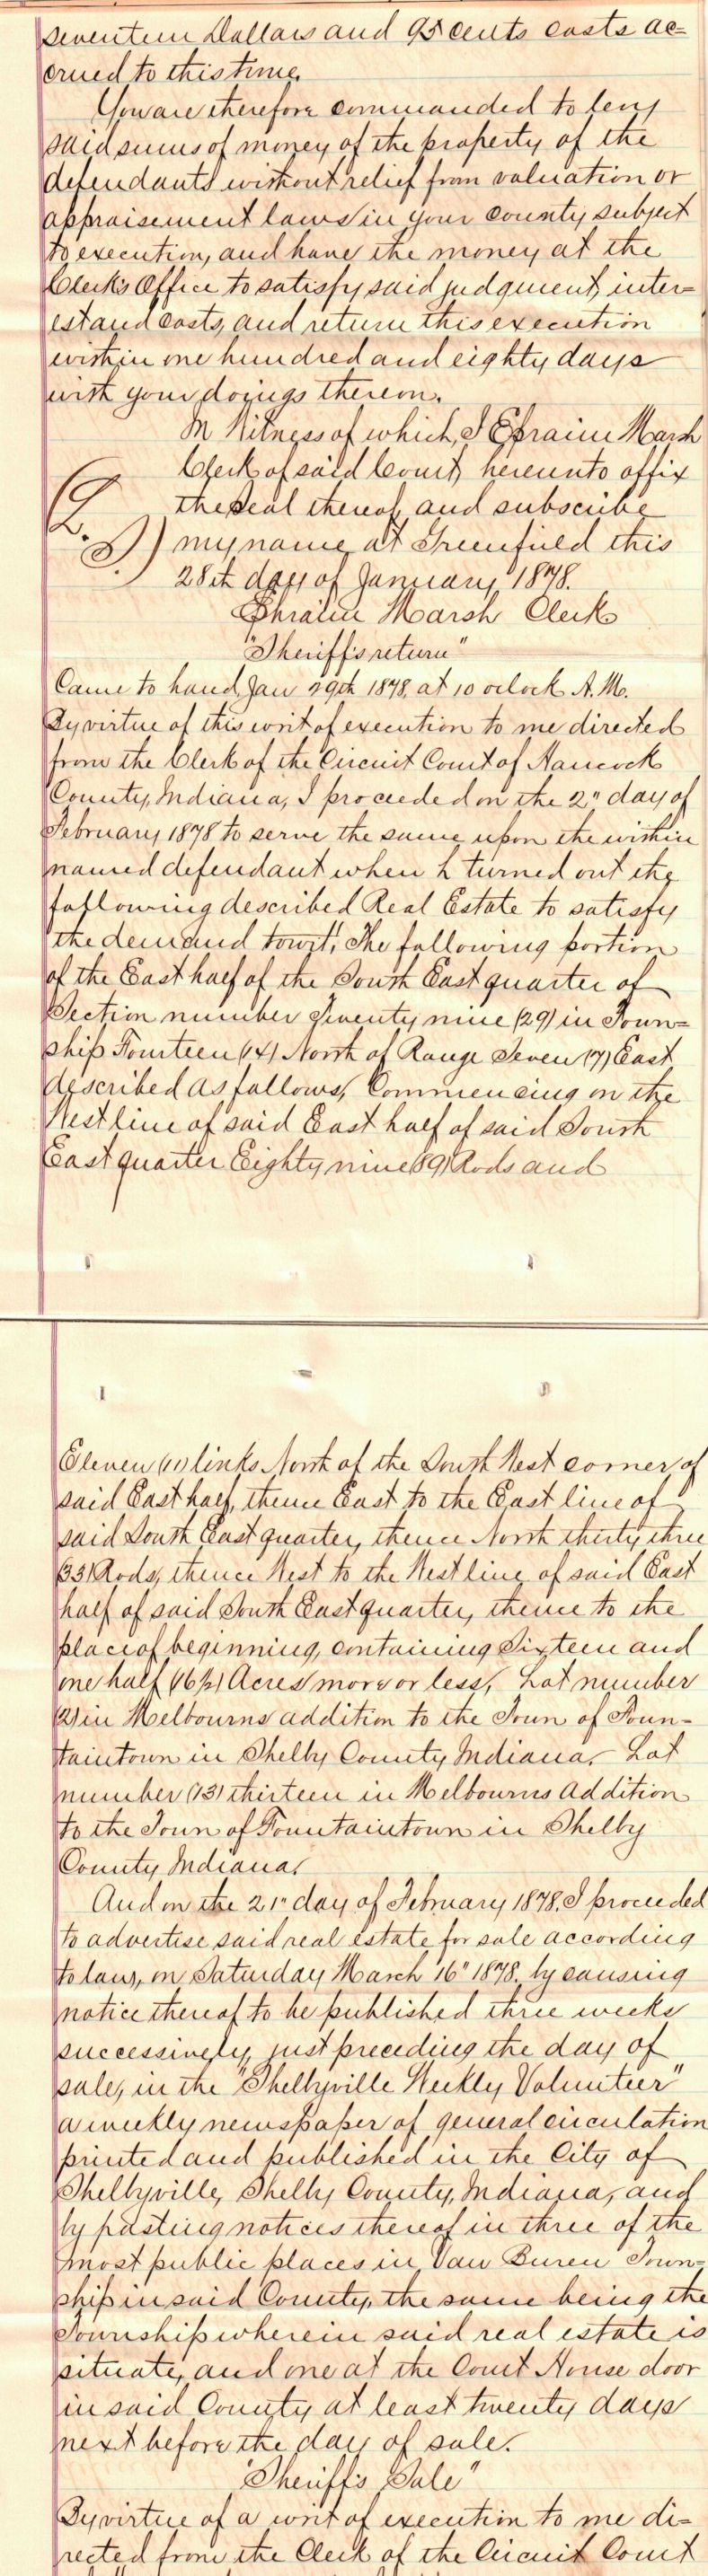 seventeen Dollars and 95 cents costs ac=
crued to this time.
You are therefore commanded to levy
said sums of money of the property of the
defendants without relief from valuation or
appraisement laws in your county subject
to execution, and have the money at the
Clerk's Office to satisfy said judgment, inter=
est and costs, and return this execution
within one hundred and eighty days
with your doings thereon.
In Witness of which, I Ephraim Marsh
Clerk of said Court, hereunto affix
the Seal thereof, and subscribe
L. S.) my name at Greenfield this
28th day of January 1878.
Ephraim Marsh Clerk
"Sheriff's return"
Came to hand, Jan 29th 1878, at 10 oclock A.M.
By virtue of this writ of execution to me directed
from the Clerk of the Circuit Court of Hancock
County, Indiana, I proceeded on the 2" day of
February 1878 to serve the same upon the within
named defendant when h turned out the
following described Real Estate to satisfy
the demand towit; The following portion
of the East half of the South East quarter of
Section number Twenty nine (29) in Town=
ship Fourteen (14) North of Range Seven (7) East
described as follows, Commencing on the
West line of said East half of said South
East quarter Eighty nine (89) Rods and
Eleven (11) links North of the South West corner of
said East half, thence East to the East line of
said South East quarter, thence North thirty three
(33) Rods, thence West to the West line of said East
half of said South East quarter, thence to the
place of beginning, containing Sixteen and
one half (16½) Acres more or less, Lot number
(2) in Melbourns addition to the Town of Foun-
taintown in Shelby County Indiana. Lot
number (13) thirteen in Melbourns Addition
to the Town of Fountaintown in Shelby
County Indiana.
And on the 21" day of February 1878. I proceeded
to advertise said real estate for sale according
to law, on Saturday March 16" 1878. by causing
notice thereof to be published three weeks
successively, just preceding the day of
sale, in the "Shelbyville Weekly Volunteer"
a weekly newspaper of general circulation
printed and published in the City of
Shelbyville, Shelby County, Indiana, and
by posting notices thereof in three of the
most public places in Van Buren Town=
ship in said County, the same being the
Township wherein said real estate is
situate, and one at the Court House door
in said County at least twenty days
next before the day of sale.
"Sheriff's Sale"
By virtue of a writ of execution to me di=
rected from the Clerk of the Circuit Court